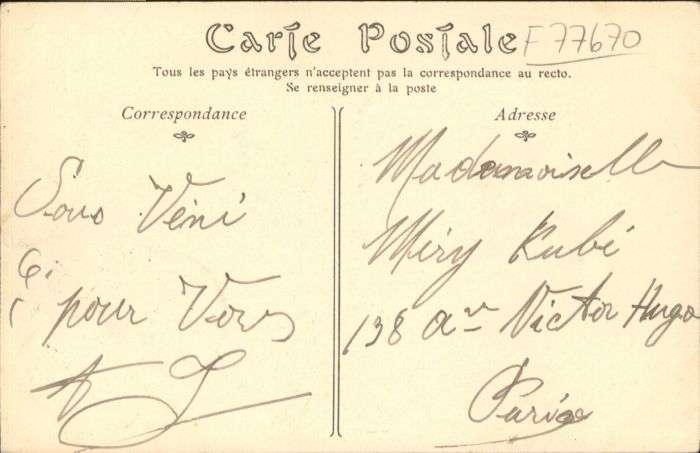 Carte Postale
F 77670
Tous les pays étrangers n'acceptent pas la correspondance au recto.
Se renseigner à la poste
Correspondance
Adresse
pour Vous
Mademoiselle
Méry Kubé
138 avn Victor Hugo
Paris